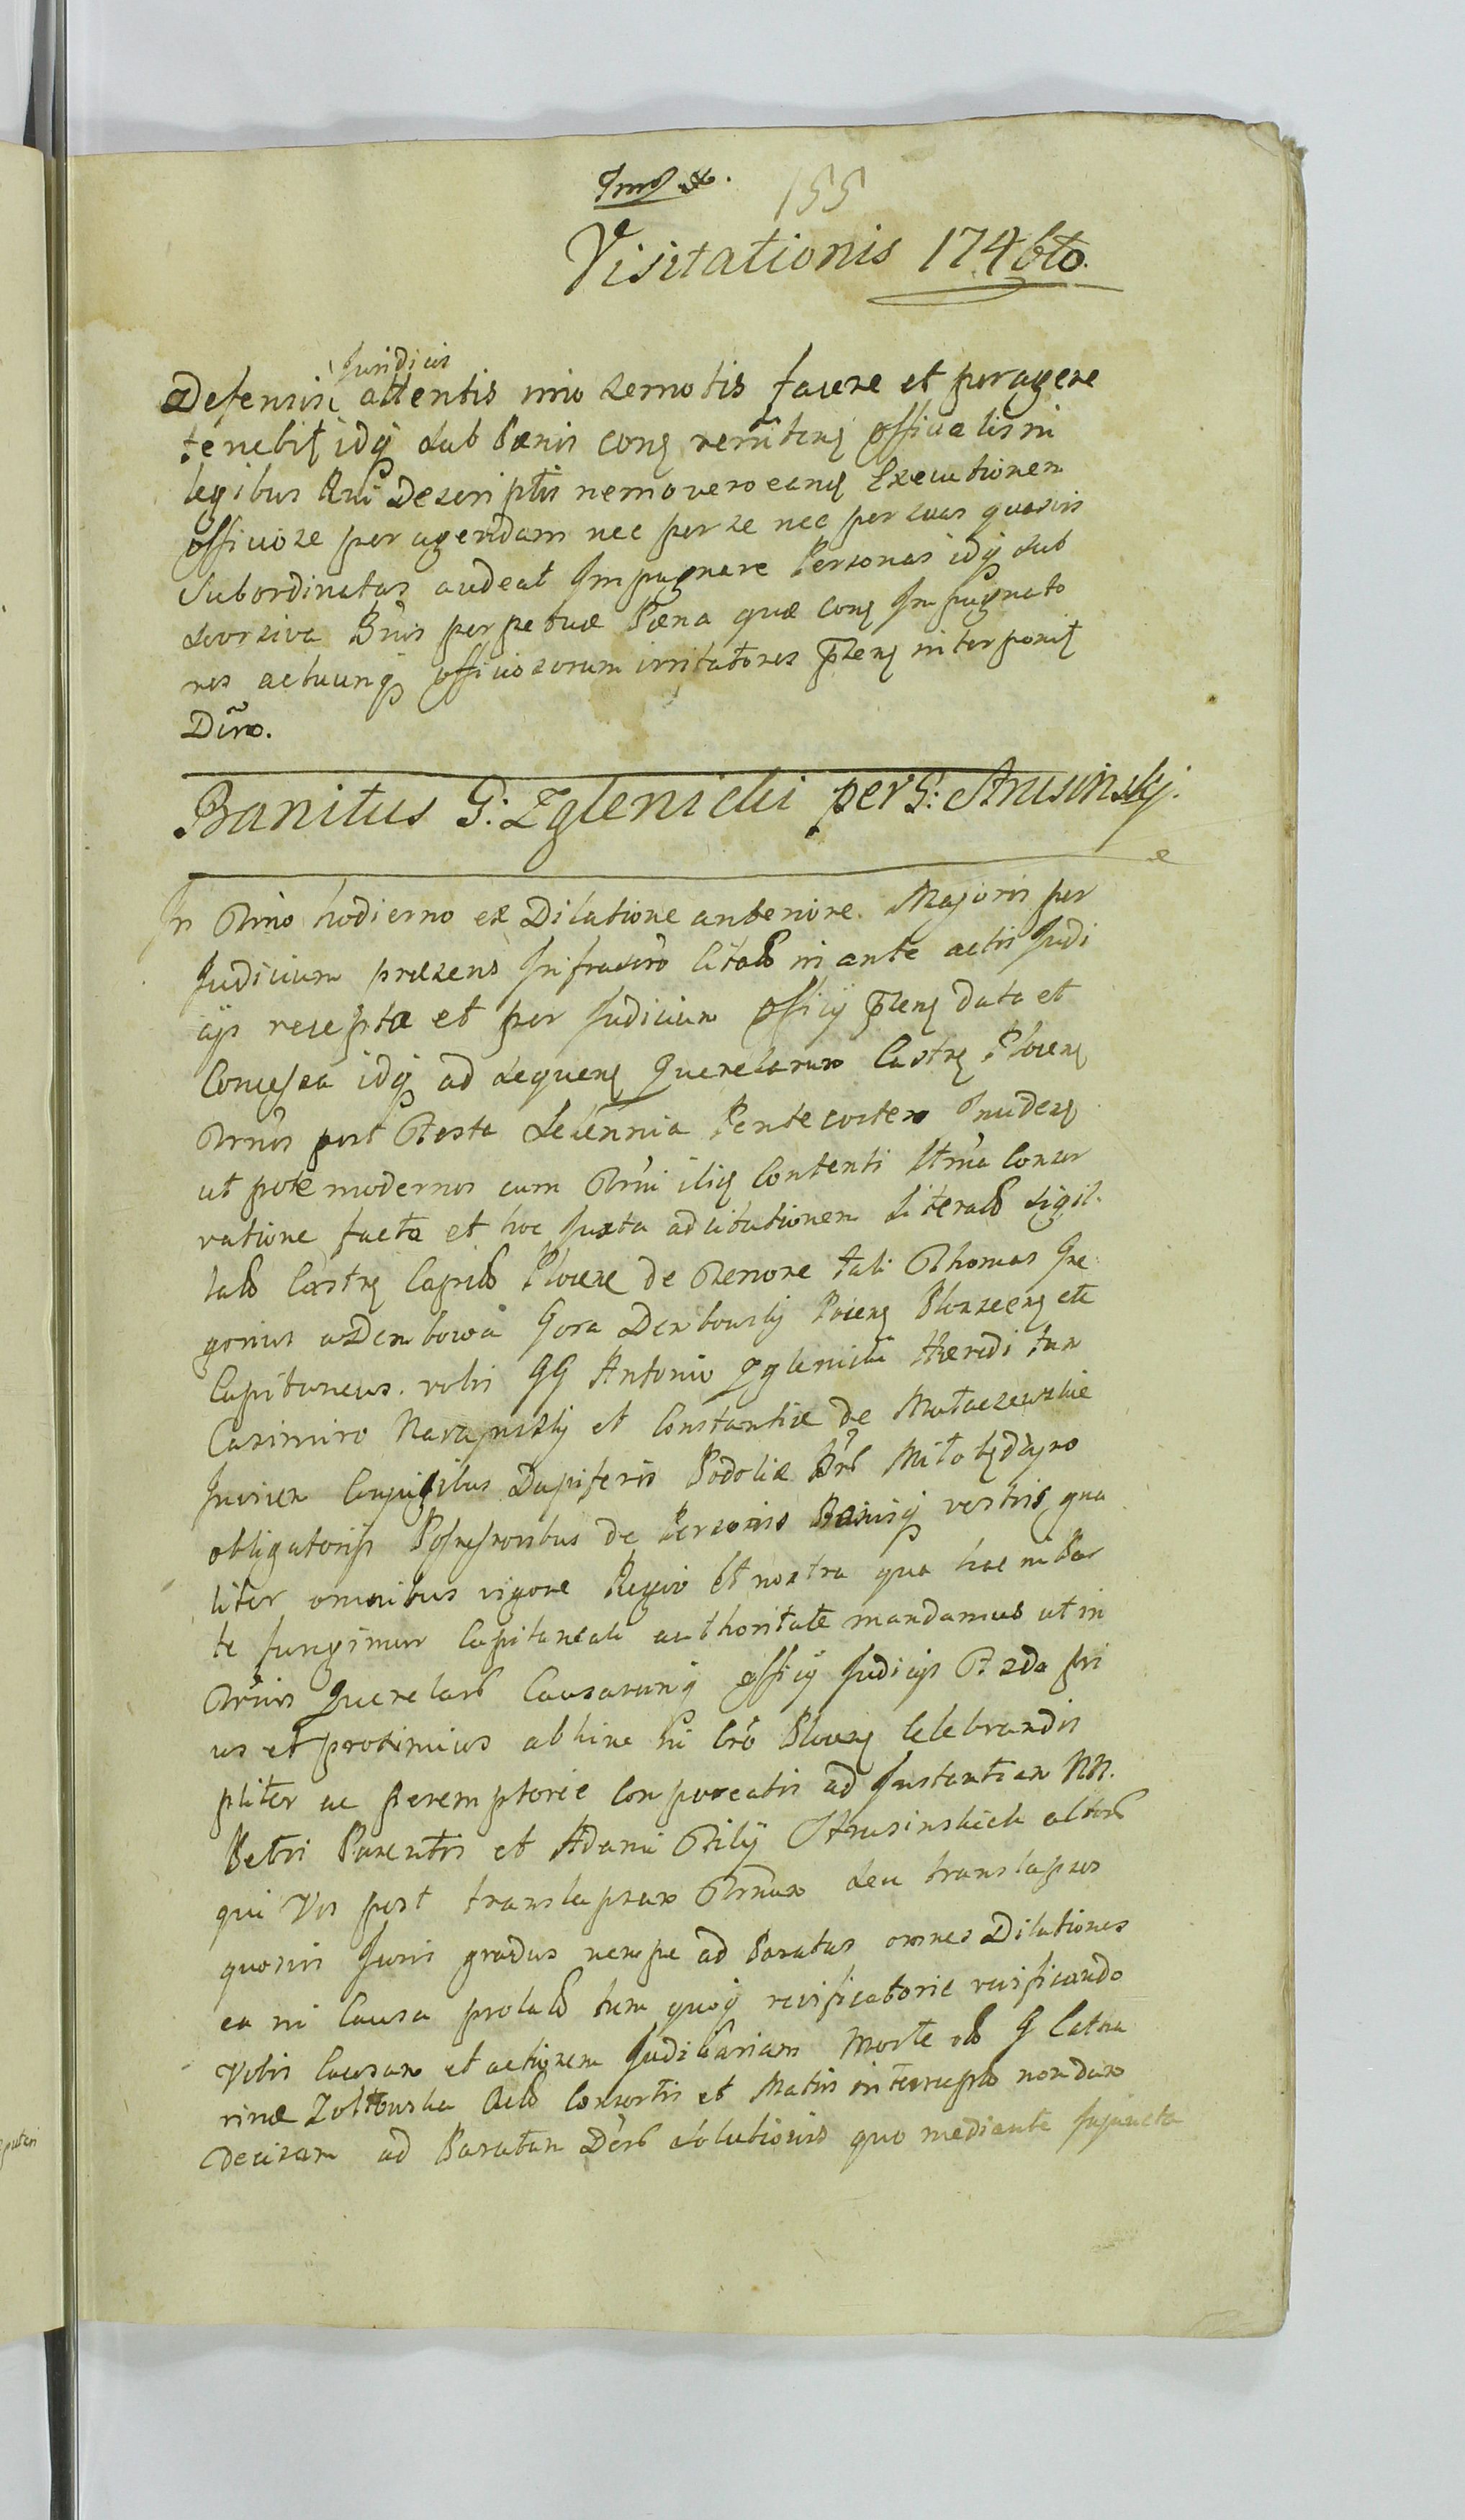 155
Visitationis 1746to.
Juridicis
Defensis attentis imo remotis facere et peragere
tenebit idq sub Pænis conq reniten officialis in
legibus Rni Descriptis nemo vero eanq Executionem
officiose peragendam nec per se nec per suas quasvis
Subordinatas audeat Impugnare Personas idq sub
seorsiva Bnis perpetuæ Pæna quæ conq Impugnato
res actuunq officiosorum irritatores prñs interponit
Diro.
Banitus G: Zglenicki per G: Strusinskj.
In Trno hodierno ex Dilatione anteriore Majoris per
Judicium præsens Infrascro Citatos in ante actis Judi
cijs recepta et per Judicium Officij prñs data et
Concessa idq ad sequen Querelarum Castren Plocen
Trnos post Festa Solennia Pentecosten Inciden
ut pote modernos cum Trni ilis Contenti Strna Conser
vatione facta et hoc Juxta adcitationem Literas Sigil
latas Castren Capitlis Plocen de Tenore tali Thomas Gre
gorius a Dembowa Gora Dembowskj Palcen Plonecen etc
Capitaneus. vobis GG Antonio Zglenicki Hæredi tum
Casimiro Narapinskj et Constantiæ de Mataczewskie
Invicem Conjugibus Dapiferis Podoliæ Bnr Miłobędzyno
obligatorijs Possessoribus de Personis Bonisq vestris gna
liter omnibus vigore Regio et nostra qua hac in Par
te fungimur Capitaneali authoritate mandamus ut in
Trnis Querelarum Causarunq officij Judicijs Feria 2da pri
us et proximius abhinc in Cro Plocen Celebrandis
pliter ac peremptorie Compareatis ad Instantiam NN.
Petri Parentis et Adami Filij Strusinskich actorum
qui Vos post translapsum Trnum seu translapsos
quosvis Juris gradus nempe ad Paratas omnes Dilationes
ea in Causa prolatas tum quoq reificatorie reificando
Vobis Causam et actionem Judiciariam Morte olim G Catha
rinæ Zoltowska Actoris Consortis et Matris interruptas nondum
Decisam ad Paratam Ders solutionis quo mediante Injuncta